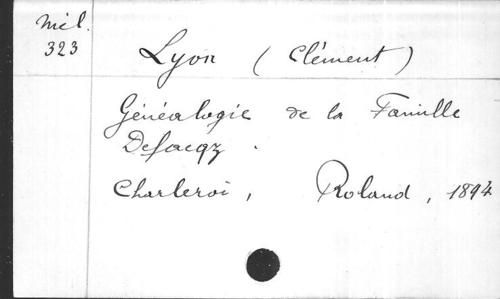 Mél.
323
Lyon (Clément)
Généalogie de la Famille
Defacqz.
Charleroi, Roland, 1894